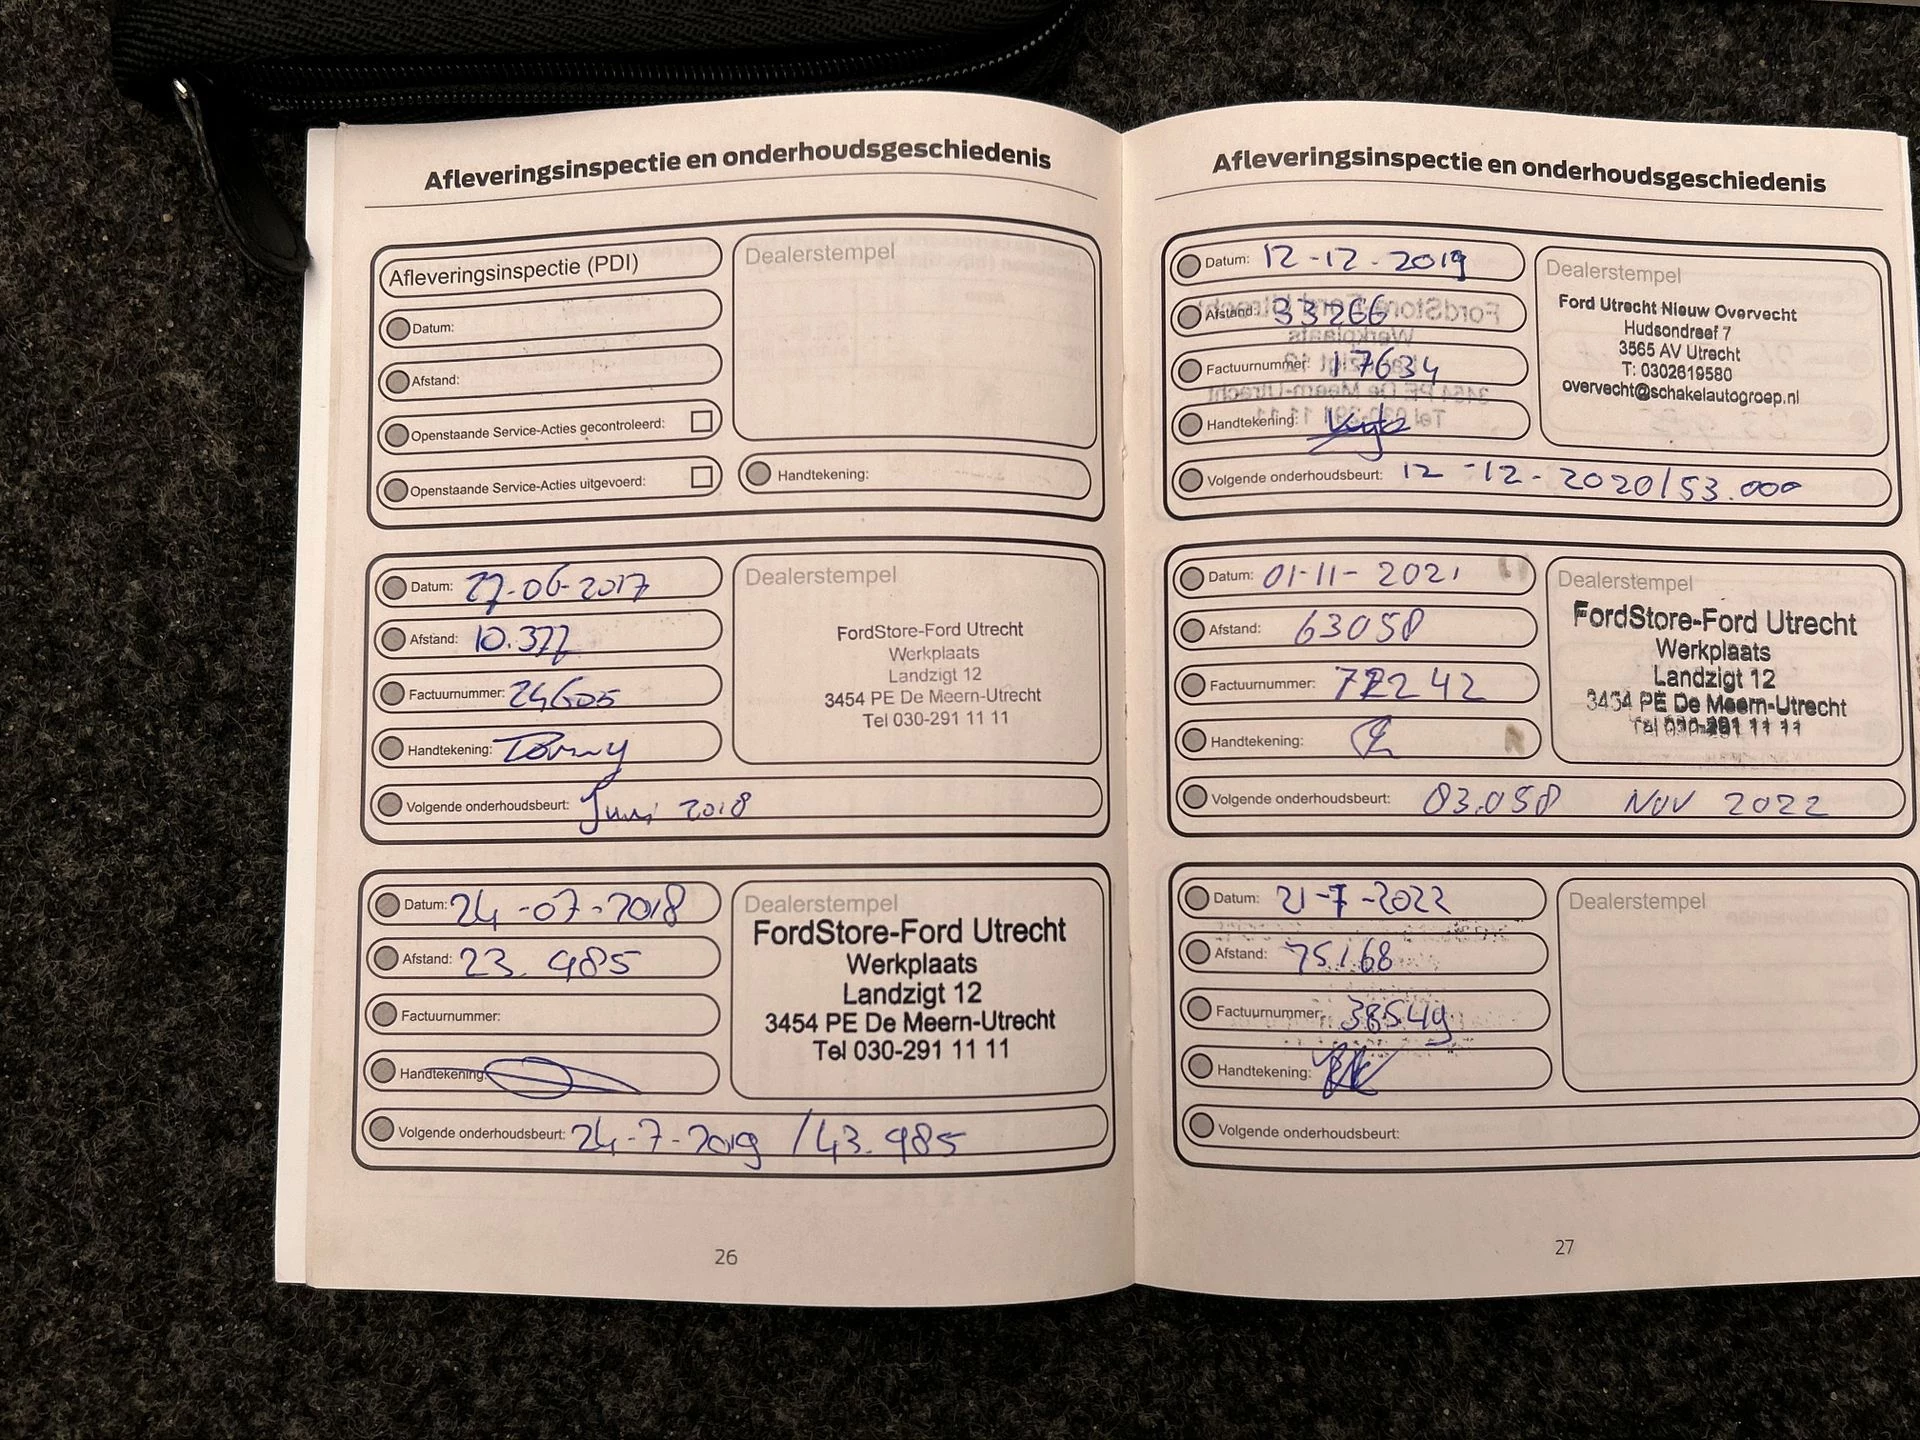 Afleveringsinspectie en onderhoudsgeschiedenis
Afleveringsinspectie (PDI)
Datum:
Afstand:
Openstaande Service-Acties gecontroleerd:
Openstaande Service-Acties uitgevoerd:
Dealerstempel
Handtekening:
Datum: 27-06-2017
Afstand: 10.377
Factuurnummer: 24605
Handtekening:
Volgende onderhoudsbeurt: Juni 2018
Dealerstempel
FordStore-Ford Utrecht
Werkplaats
Landzigt 12
3454 PE De Meern-Utrecht
Tel 030-291 11 11
Datum: 24-07-2018
Afstand: 23.985
Factuurnummer:
Handtekening:
Volgende onderhoudsbeurt: 24-7-2019 /43.985
Dealerstempel
FordStore-Ford Utrecht
Werkplaats
Landzigt 12
3454 PE De Meern-Utrecht
Tel 030-291 11 11
26
Afleveringsinspectie en onderhoudsgeschiedenis
Datum: 12-12-2019
Afstand: 33266
Factuurnummer: 17634
Handtekening:
Volgende onderhoudsbeurt: 12-12-2020/53.000
Dealerstempel
Ford Utrecht Nieuw Overvecht
Hudsondreef 7
3565 AV Utrecht
T: 0302619580
overvecht@schakelautogroep.nl
Datum: 01-11-2021
Afstand: 63058
Factuurnummer: 77242
Handtekening:
Volgende onderhoudsbeurt: 83.058 NOV 2022
Dealerstempel
FordStore-Ford Utrecht
Werkplaats
Landzigt 12
3454 PE De Meern-Utrecht
Tel 030-291 11 11
Datum: 21-7-2022
Afstand: 75168
Factuurnummer: 38549
Handtekening:
Volgende onderhoudsbeurt:
Dealerstempel
27